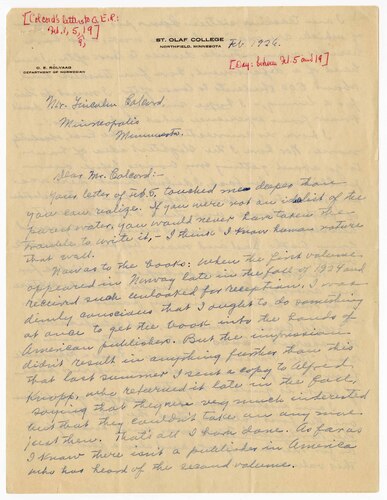 [Colcord's letters to O. E. R.:
Feb. 1, 5, 19]
9,
ST. OLAF COLLEGE
NORTHFIELD, MINNESOTA
Feb 1926.
O. E. RÖLVAAG
DEPARTMENT OF NORWEGIAN
[Day: between Feb. 5 and 19]
Mr. Lincoln Colcord,
Minneapolis
Minnesota.
Dear Mr. Colcord:-
Your letter of Feb. 5, touched me deeper than
you can realize. If you were not an idealist of the
purest water, you would never have taken the
trouble to write it, - I think I know human nature
that well.
Now as to the books: When the first volume
appeared in Norway late in the fall of 1924 and
received such unlooked for reception, I was
dimly conscious that I ought to do something
at once to get the book into the hands of
American publishers. But the impression
didn't result in anything further than this
that last summer I sent a copy to Alfred
Knopp, who returned it late in the fall,
saying that they were very much interested
but that they couldn't take on any more
just then. That's all I have done. As far as
I know there isn't a publisher in America
who has heard of the second volume.